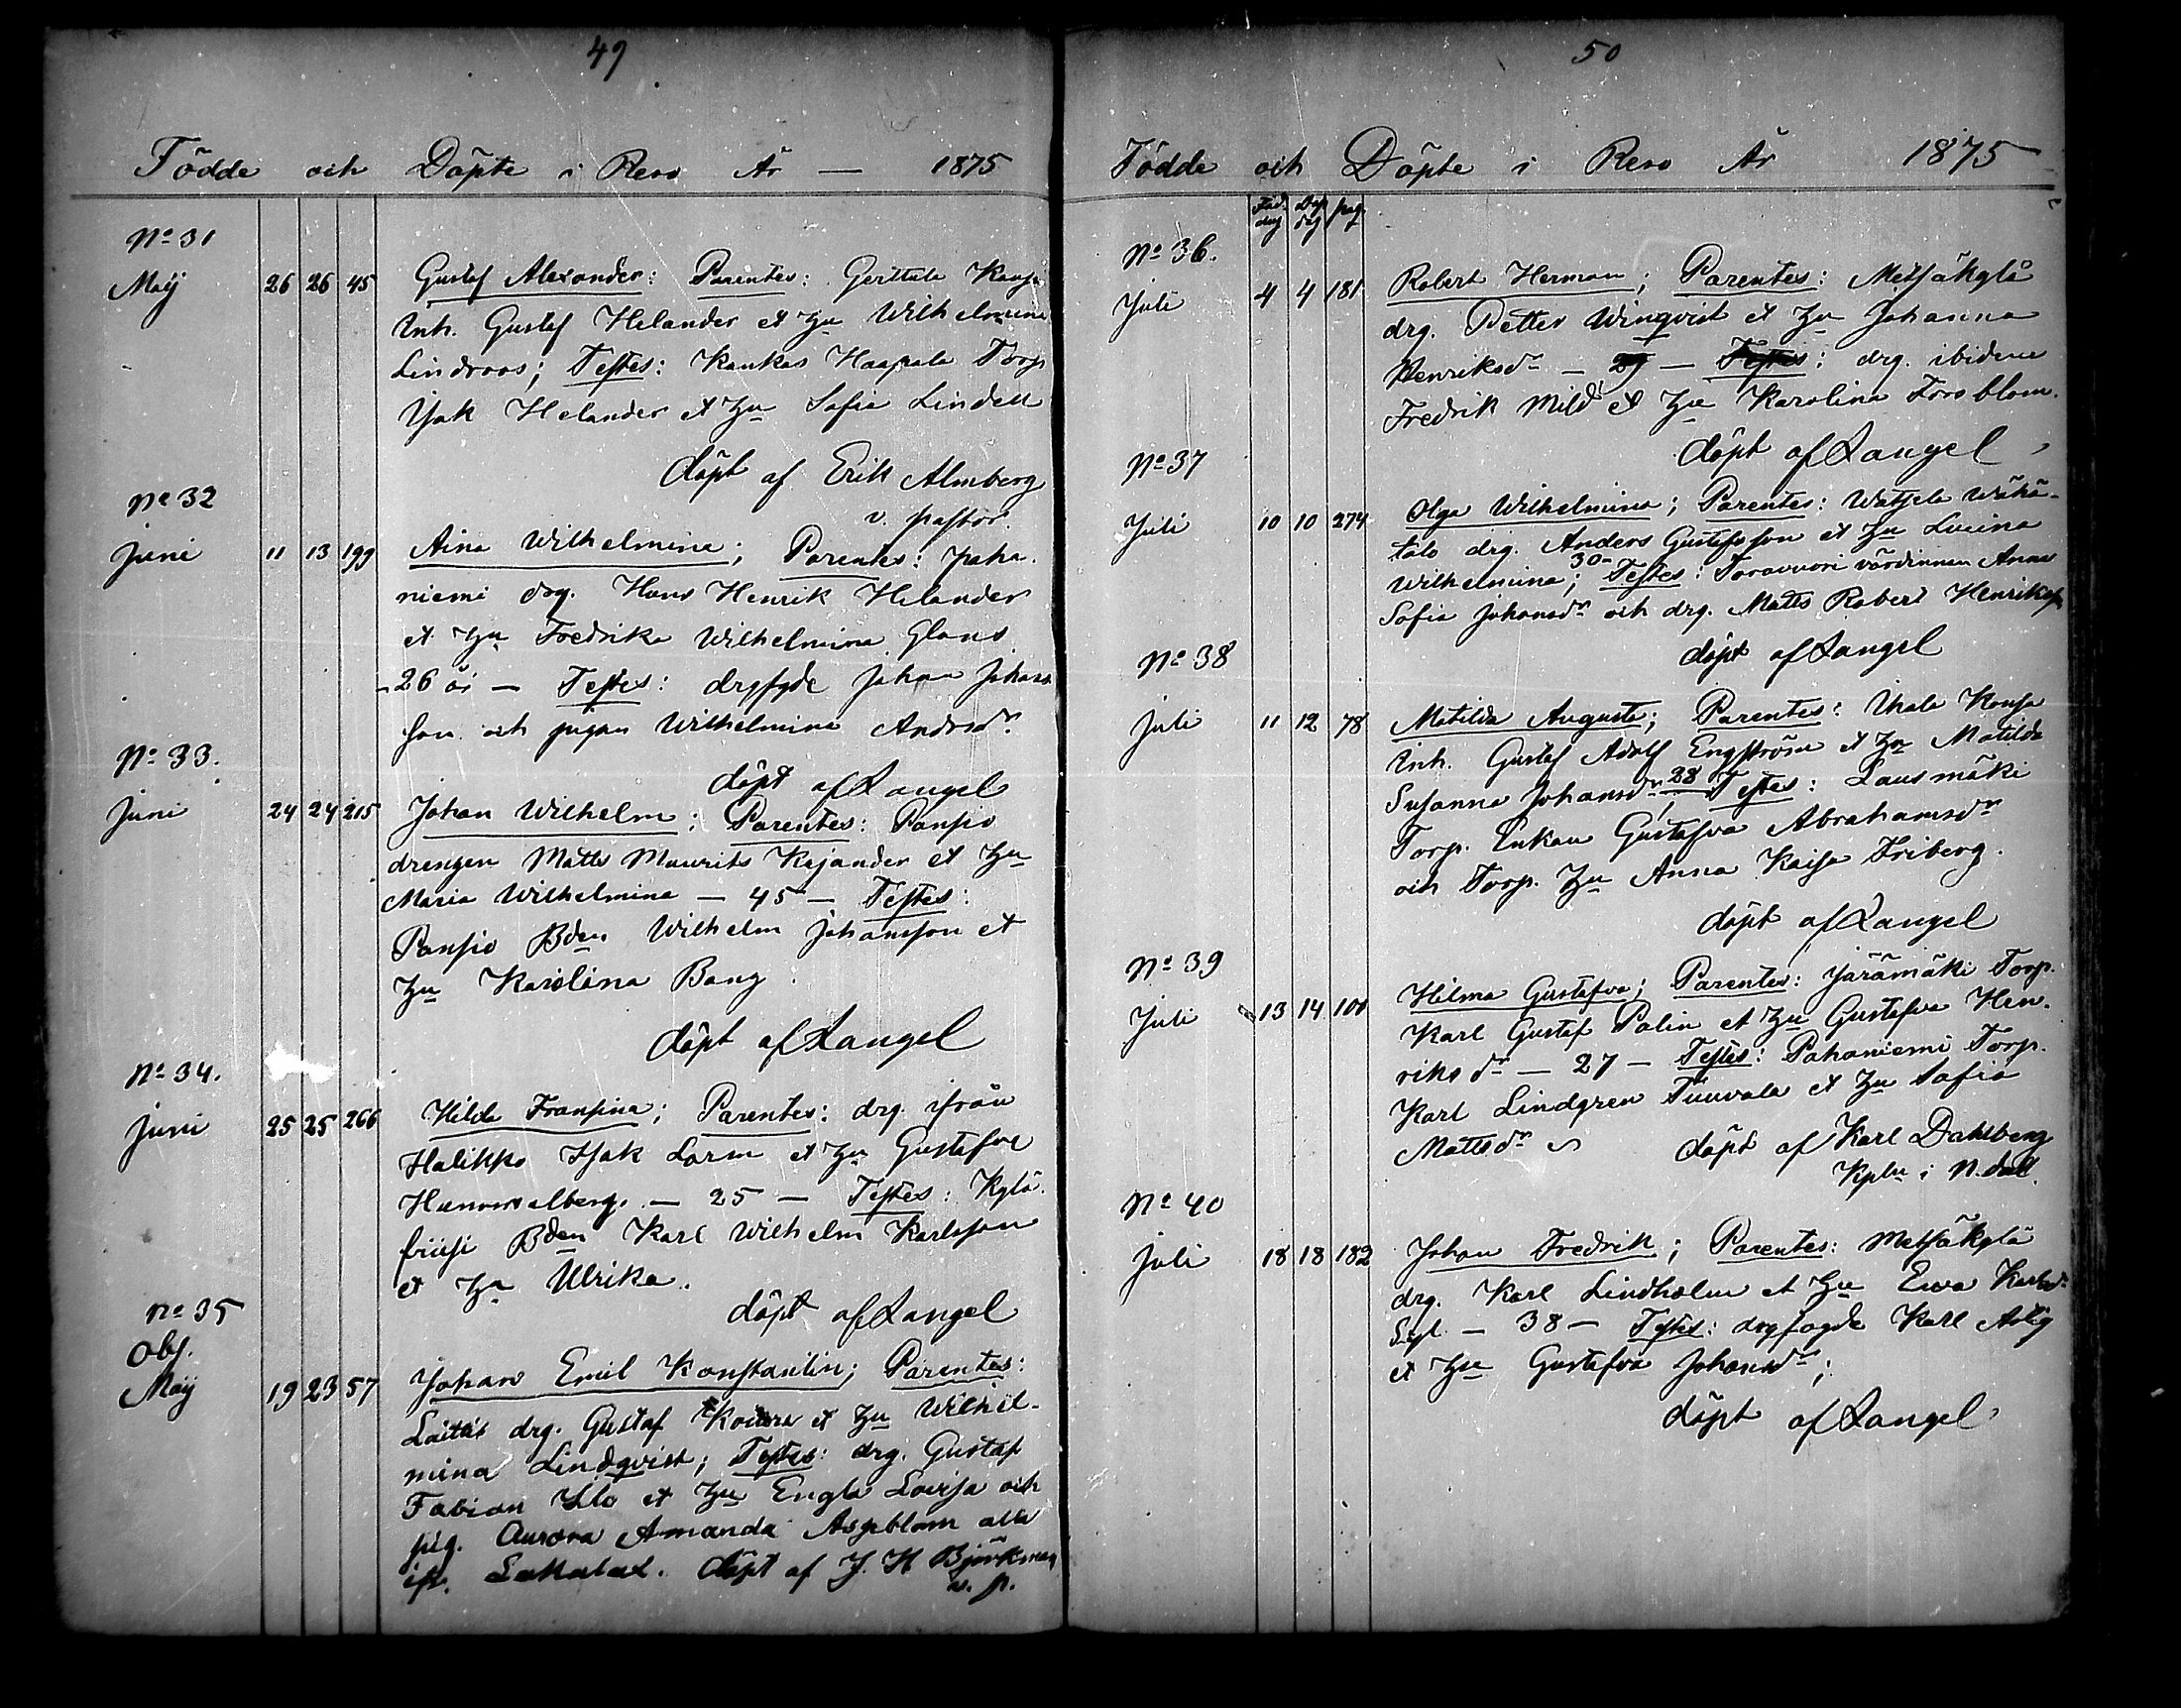 49
Födde och Döpte i Reso År — 1875
No 31
Maij 26 26 45 Gustaf Alexander: Parentes: Gerttula
Inh. Gustaf Helander et hu Wilhelmina
Lindroos; Testes: Kankas Haapala Torp.
Isak Helander et hu Sofia Lindell
döpt af Erik Almberg
v. pastor.
No 32
Juni 11 13 199 Aina Wilhelmina; Parentes: Paha-
niemi drg. Hans Henrik Helander
et hu Fredrika Wilhelmina Glans
– 26 år — Testes: Johan Johans
son och pigan Wilhelmina Andersdr.
döpt af Langel
No 33.
Juni 24 24 215 Johan Wilhelm; Parentes: Pansio
drengen Matts Maurits Kajander et hu
Maria Wilhelmina — 45 — Testes:
Pansio Bden Wilhelm Johansson et
hu Karolina Bang.
döpt af Langel
No 34.
Juni 25 25 266 Hilda Fransina; Parentes: drg. ifrån
Halikko Isak Lorm et hu Gustafva
Hummelberg. — 25 — Testes: Kylä-
Bden Karl Wilhelm Karlsson
et hu Ulrika.
döpt af Langel
No 35
Obs.
Maij 19 23 57 Johan Emil Konstantin; Parentes:
Laitis drg. Gustaf et hu Wilhel-
mina Lindqvist; Testes: drg. Gustaf
Fabian et hu Engla Lovisa och
pig. Aurora Amanda Aspblom alla
ifr. Lokalax. döpt af J. H. Björkman
v. p.
50
Födde och Döpte i Reso År 1875
Föd. dag Döp dag pag.
No 36.
Juli 4 4 181 Robert Herman; Parentes: Metsäkylä
drg. Petter Winqvist et hu Johanna
Henriksdr — — Testes: drg. ibidem
Fredrik Mild et hu Karolina Forsblom.
döpt af Langel
No 37
Juli 10 10 274 Olga Wilhelmina; Parentes: Wähä-
talo drg. Anders Gustafsson et hu Lovina
30
Wilhelmina; Testes: värdinnan Anna
Sofia Johansdr och drg. Matts Robert Henriksson
döpt af Langel
No 38
Juli 11 12 78 Matilda Augusta; Parentes: Ihala
Inh. Gustaf Adolf Engström et hu Matilda
Susanna Johansdr 28 Testes: Lausmäki
Torp. Enkan Gustafva Abrahamsdr
och Torp. hu Anna Kaisa Friberg.
döpt af Langel
No 39
Juli 13 14 101 Hilma Gustafva; Parentes: Järämäki Torp.
Karl Gustaf Palin et hu Gustafva Hen-
riksdr — 27 — Testes: Pahaniemi Torp.
Karl Lindgren Tuuvala et hu Sofia
Mattsdr döpt af Karl Dahlberg
Kpln i N.dal.
No 40
Juli 18 18 182 Johan Fredrik; Parentes: Metsäkylä
drg. Karl Lindholm et hu Ewa Karlsdr
— 38 — Testes: Karl Arlig
et hu Gustafva Johansdr;
döpt af Langel